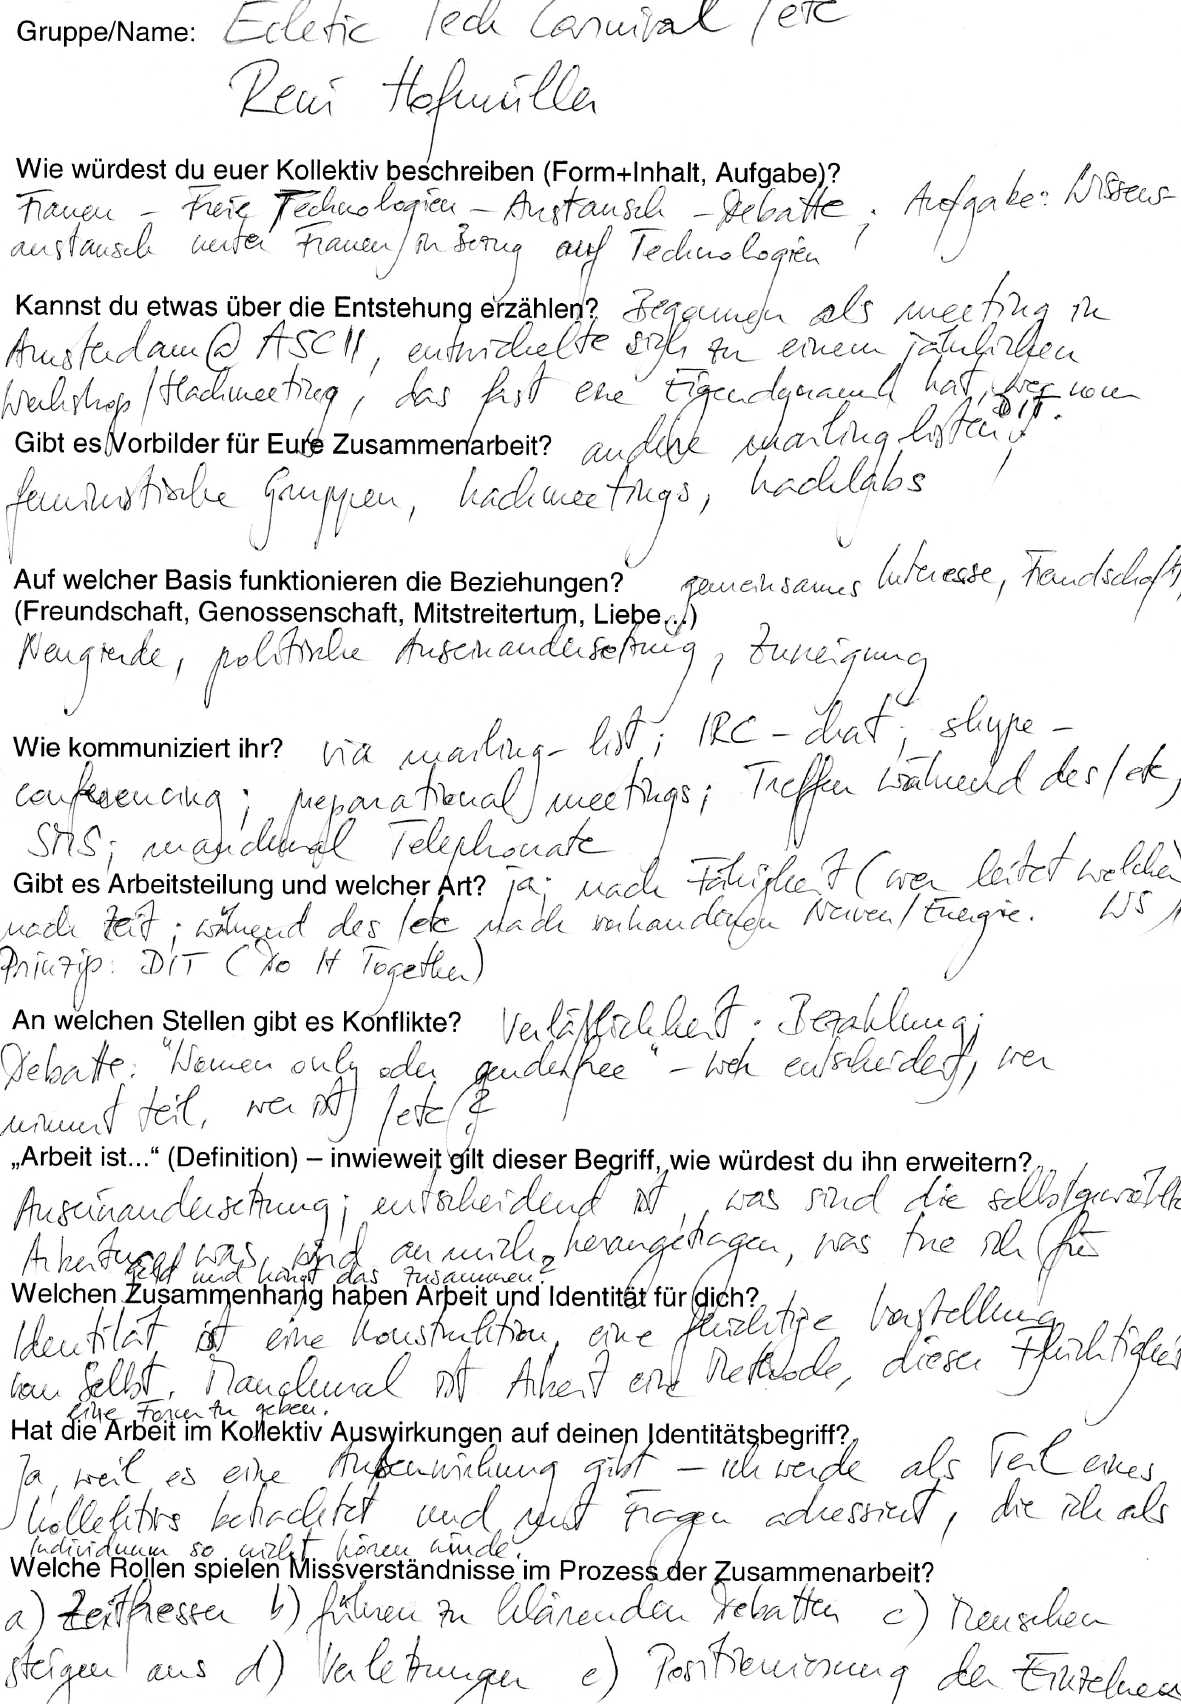 Gruppe/Name: Ecletic Tech Carnival /etc
Reni Hofmüller
Wie würdest du euer Kollektiv beschreiben (Form+Inhalt, Aufgabe)?
Frauen – Freie Technologien – Austausch – Debatte ; Aufgabe: Wissens-
austausch unter Frauen / in Bezug auf Technologien
Kannst du etwas über die Entstehung erzählen? Begonnen als meeting in
Amsterdam @ ASCII, entwickelte sich zu einem jährlichen
Workshop/Hackmeeting, das fast eine Eigendynamik hat,
DIT.
Gibt es Vorbilder für Eure Zusammenarbeit? andere mailinglisten,
feministische Gruppen, hackmeetings, hacklabs
Auf welcher Basis funktionieren die Beziehungen? gemeinsames Interesse, Freundschaft,
(Freundschaft, Genossenschaft, Mitstreitertum, Liebe...)
Neugierde, politische Auseinandersetzung, Zuneigung
Wie kommuniziert ihr? via mailing-list; IRC-chat; skype-
conferencing; preparational meetings; Treffen während des /etc,
SMS; manchmal Telephonate
Gibt es Arbeitsteilung und welcher Art? ja; nach Fähigkeit (wer leitet welchen
nach Zeit; während des /etc nach vorhandenen Nerven/Energie. WS)
Prinzip: DIT (Do It Together)
An welchen Stellen gibt es Konflikte? Verläßlichkeit. Bezahlung;
Debatte: "Women only oder genderfree" – wer entscheidet, wer
nimmt teil, wer ist /etc?
„Arbeit ist...“ (Definition) – inwieweit gilt dieser Begriff, wie würdest du ihn erweitern?
Auseinandersetzung; entscheidend ist, was sind die selbstgewählten
was wird an mich herangetragen, was tue ich für
Geld und hängt das zusammen?
Welchen Zusammenhang haben Arbeit und Identität für dich?
Identität ist eine Konstruktion, eine flüchtige Vorstellung
vom Selbst. Manchmal ist Arbeit eine Methode, dieser Flüchtigkeit
eine Form zu geben.
Hat die Arbeit im Kollektiv Auswirkungen auf deinen Identitätsbegriff?
Ja, weil es eine Außenwirkung gibt – ich werde als Teil eines
Kollektivs betrachtet und mit Fragen adressiert, die ich als
Individuum so nicht hören würde.
Welche Rollen spielen Missverständnisse im Prozess der Zusammenarbeit?
a) Zeitfresser b) führen zu klärenden Debatten c) Menschen
steigen aus d) Verletzungen e) Positionierung der Einzelnen